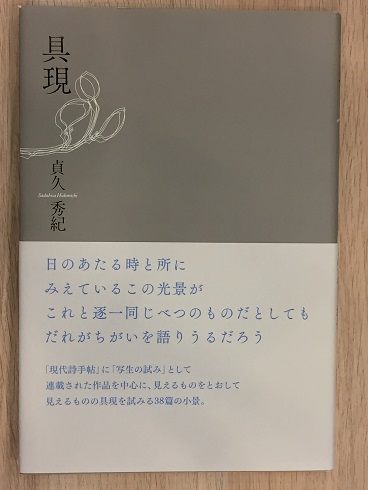 具現
貞久 秀紀
Sadahisa Hidemichi
日のあたる時と所に
みえているこの光景が
これと逐一同じべつのものだとしても
だれがちがいを語りうるだろう
「現代詩手帖」に「写生の試み」として
連載された作品を中心に、見えるものをとおして
見えるものの具現を試みる38篇の小景。